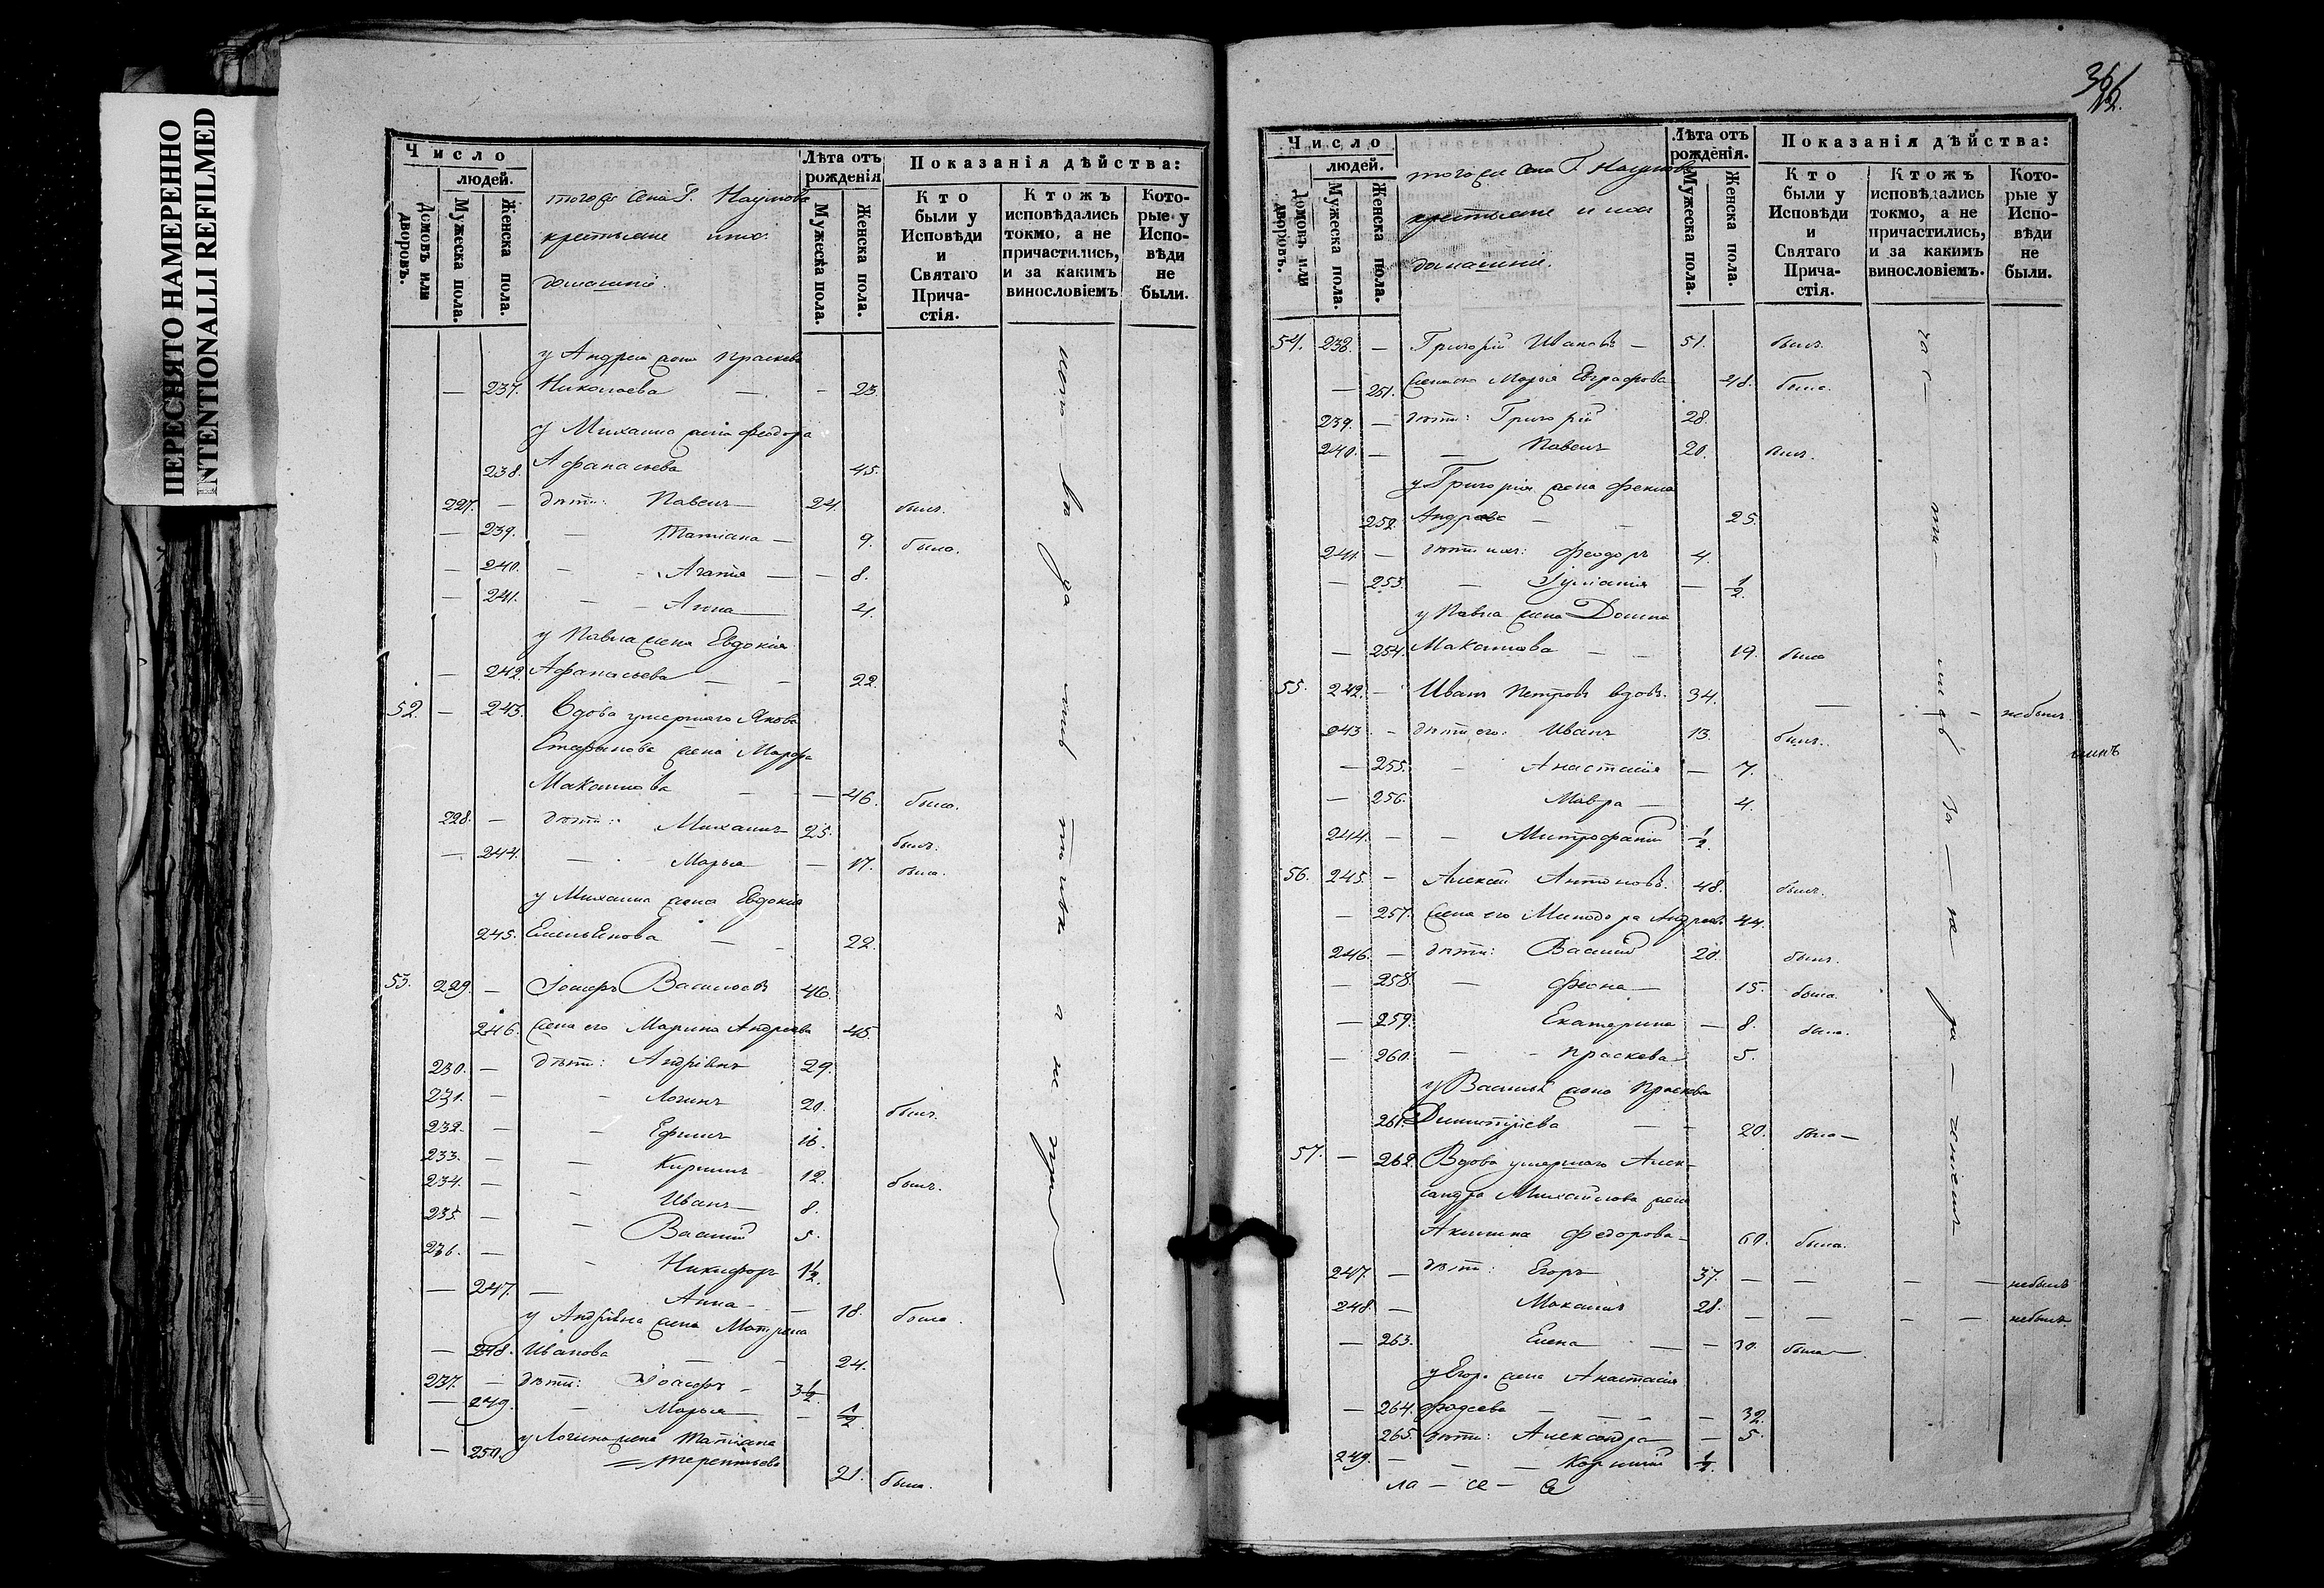 ПЕРЕСНЯТО НАМЕРЕННО
INTENTIONALLI REFILMED
Число
людей.
Домовъ или дворовъ.
Мужеска пола.
Женска пола.
тогоже села Г. Наумова
крестьяне и ихъ
домашніе.
Лѣта отъ рожденія
Мужеска пола.
Женска пола.
Показанія дѣйства:
Кто были у Исповѣди и Святаго Прича-стія.
Ктожъ исповѣдались токмо, а не причастились, и за какимъ винословіемъ
Кото-рые у Испо-вѣди не были.
у Андрея жена Праскева
— 237. Николаева — — 23.
у Михаила жена Феодора
238. Афанасьева 45.
227. — дѣти: Павелъ 24. былъ.
— 239. — Татіана — 9. была.
— 240. — Агапія — — 8.
— 241. — Анна 4.
у Павла жена Евдокія
— 242. Афанасьева — — 22.
52. — 243. Вдова умершаго Якова
жена Марфа
Макашова — — 46. была.
228. — дѣти: Михаилъ 25. былъ.
— 244. — Марья — 17. была.
у Михаила жена Евдокія
245. Емельянова — 22.
53. 229. — Іосифъ Васильевъ 46.
246. жена его Марина Андреева 45.
230. — дѣти: Андріянъ 29.
231. — — Логинъ 20. былъ.
232. — — Ефимъ 16.
233. — — Кирилъ 12. былъ.
234. — — Иванъ — 8.
235. — — Василій 5.
236. — — Никифоръ 1½.
— 247. — Анна — — 18. была.
у Андріяна жена Матрена
— 248. Иванова — — 24.
237. — дѣти: Іосифъ — 3½
— 249. — Марья — — ½
у Логина жена Татіана
— 250. Терентьева 21. была.
366
Число
людей.
Домовъ или дворовъ.
Мужеска пола.
Женска пола.
тогоже села Г. Наумова
крестьяне и ихъ
домашніе.
Лѣта отъ рожденія.
Мужеска пола.
Женска пола.
Показанія дѣйства:
Кто были у Исповѣди и Святаго Прича-стія.
Ктожъ исповѣдались токмо, а не причастились, и за какимъ винословіемъ.
Кото-рые у Испо-вѣди не были.
54. 238. — Григорій Ивановъ — 51. былъ.
— 251. жена его Марья Евграфова 48. была.
239. — дѣти: Григорій 28.
240. — — Павелъ 20. былъ.
у Григорія жена Фекла
252. Андреева — — 25.
241. — дѣти ихъ: Феодоръ 4.
— 253. — Іуліанія — ½
у Павла жена Домна
— 254. Макашова — — 19. была
55. 242. — Иванъ Петровъ вдовъ. 34. — — небылъ.
243. — дѣти его: Иванъ 13. былъ.
— 255. — Анастасія — 7.
— 256. Мавра — 4.
244. — — Митрофаній ½
56. 245. — Алексѣй Антоновъ. 48. былъ.
— 257. жена его Минодора Андреев. 44.
246. — дѣти: Василій 20. былъ.
— 258. — Фекла — 15. была.
— 259. Екатерина — 8. была.
— 260. — Праскева 5.
у Василья жена Праскева
261. Димитріева — — 20. была —
57. — 262. Вдова умершаго Алек-
сандра Михайлова жена
Акилина Федорова — 60. была.
247. — дѣти: Егоръ 37. — — — — небылъ
248. — Макаилъ 28. — — — — небылъ.
— 263. Елена — — 30. была —
у Егора жена Анастасія
— 264. Фадеева — — — — 32.
265. дѣти: Александра — — 5.
249. — — — Корнилій ½.
ла — се — в